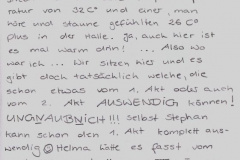 ratur von 32C° und einer, man
höre und staune gefühlten 26 C°
plus in der Halle. Ja, auch hier ist
es mal warm drin! ... Also wo
war ich ... Wir sitzen hier und es
gibt doch tatsächlich welche, die
schon etwas vom 1. Akt oder auch
vom 2. Akt AUSWENDIG können!
UNGLAUBLICH!!! Selbst Stephan
kann schon den 1. Akt komplett aus-
wendig ☺ Helma hätte es fast vom